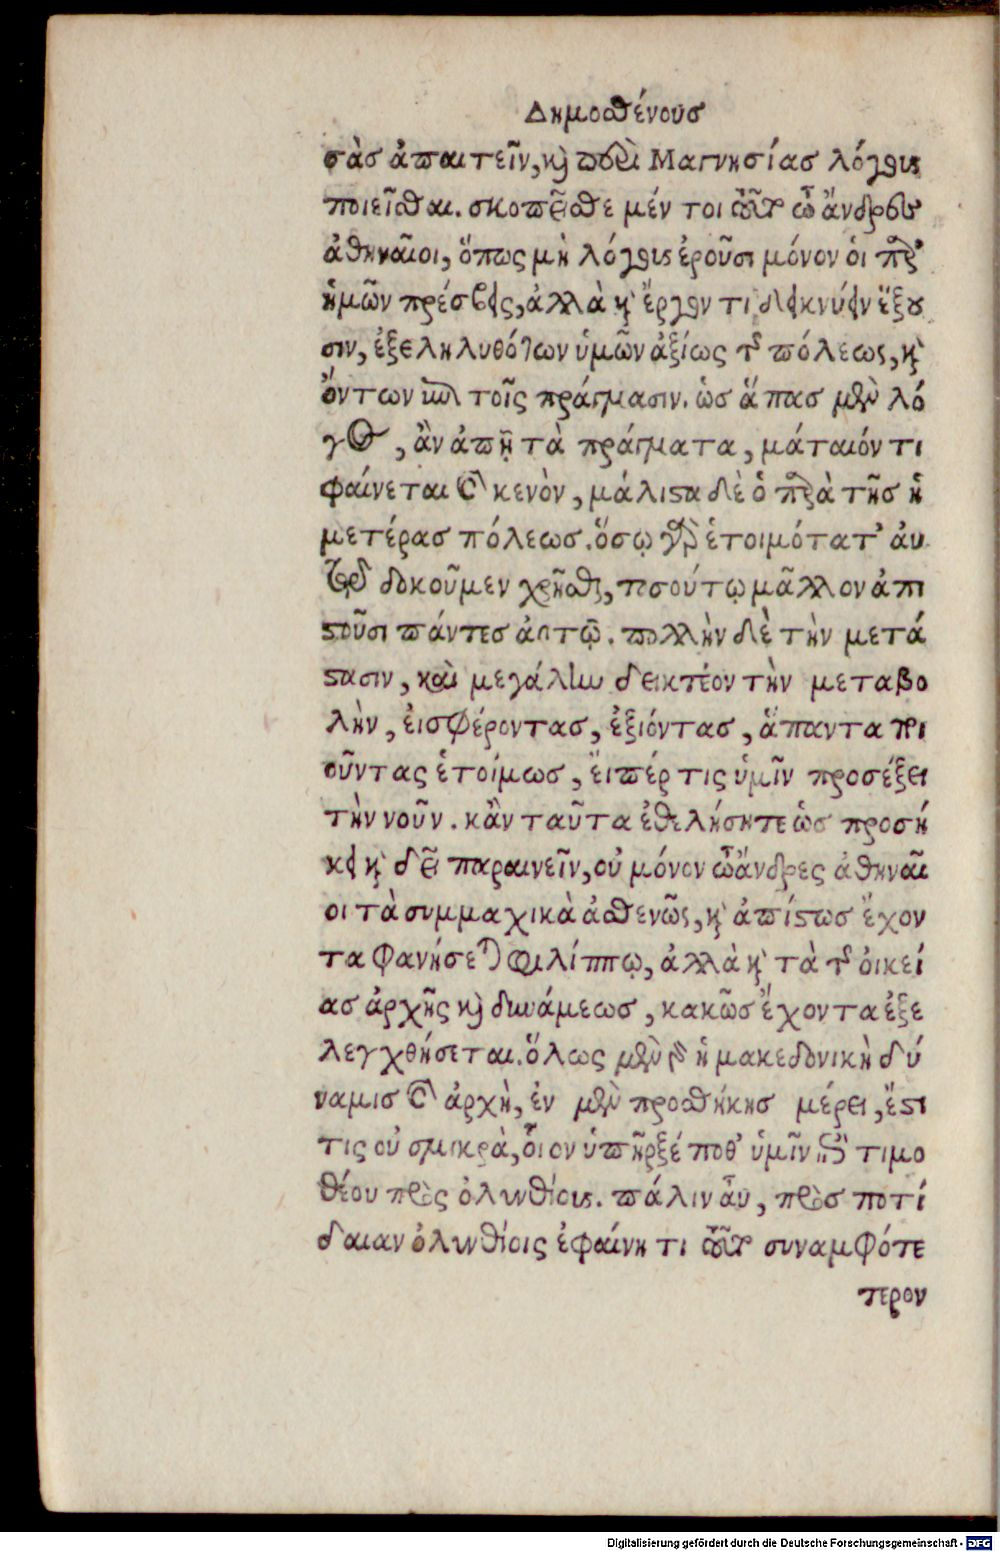 Δημοσθένους
σὰς ἀπαιτεῖν, καὶ περὶ Μαγνησίας λόγους
ποιεῖσθαι. σκοπεῖσθε μέν τοι τοῦτ' ὦ ἄνδρες
ἀθηναῖοι, ὅπως μὴ λόγους ἐροῦσι μόνον οἱ παρ'
ἡμῶν πρέσβεις, ἀλλὰ καὶ ἔργον τι δεικνύειν ἕξου
σιν, ἐξεληλυθότων ὑμῶν ἀξίως τῆς πόλεως, καὶ
ὄντων ἐπὶ τοῖς πράγμασιν. ὡς ἅπας μὲν λό
γος, ἂν ἀπῇ τὰ πράγματα, μάταιόν τι
φαίνεται καὶ κενὸν, μάλιστα δὲ ὁ παρὰ τῆς ἡ
μετέρας πόλεως. ὅσῳ γὰρ ἑτοιμότατ' αὐ
τῷ δοκοῦμεν χρῆσθαι, τοσούτῳ μᾶλλον ἀπι
στοῦσι πάντες αὐτῷ. πολλὴν δὲ τὴν μετά
στασιν, καὶ μεγάλην δεικτέον τὴν μεταβο
λὴν, εἰσφέροντας, ἐξιόντας, ἅπαντα ποι
οῦντας ἑτοίμως, εἴπέρ τις ὑμῖν προσέξει
τὴν νοῦν. κἂν ταῦτα ἐθελήσητε ὡς προσή
κει καὶ δεῖ παραινεῖν, οὐ μόνον ὦ ἄνδρες ἀθηναῖ
οι τὰ συμμαχικὰ ἀσθενῶς, καὶ ἀπίστως ἔχον
τα φανήσεται φιλίππῳ, ἀλλὰ καὶ τὰ τῆς οἰκεί
ας ἀρχῆς καὶ δυνάμεως, κακῶς ἔχοντα ἐξε
λεγχθήσεται. ὅλως μὲν γὰρ ἡ μακεδονικὴ δύ
ναμις καὶ ἀρχὴ, ἐν μὲν προσθήκης μέρει, ἔστι
τις οὐ σμικρὰ, οἷον ὑπῆρξέ ποθ' ὑμῖν ἐπὶ τιμο
θέου πρὸς ὀλυνθίους. πάλιν αὖ, πρὸς ποτί
δαιαν ὀλυνθίοις ἐφαίνη τι τοῦτ' συναμφότε
τερον
Digitalisierung gefördert durch die Deutsche Forschungsgemeinschaft - DFG